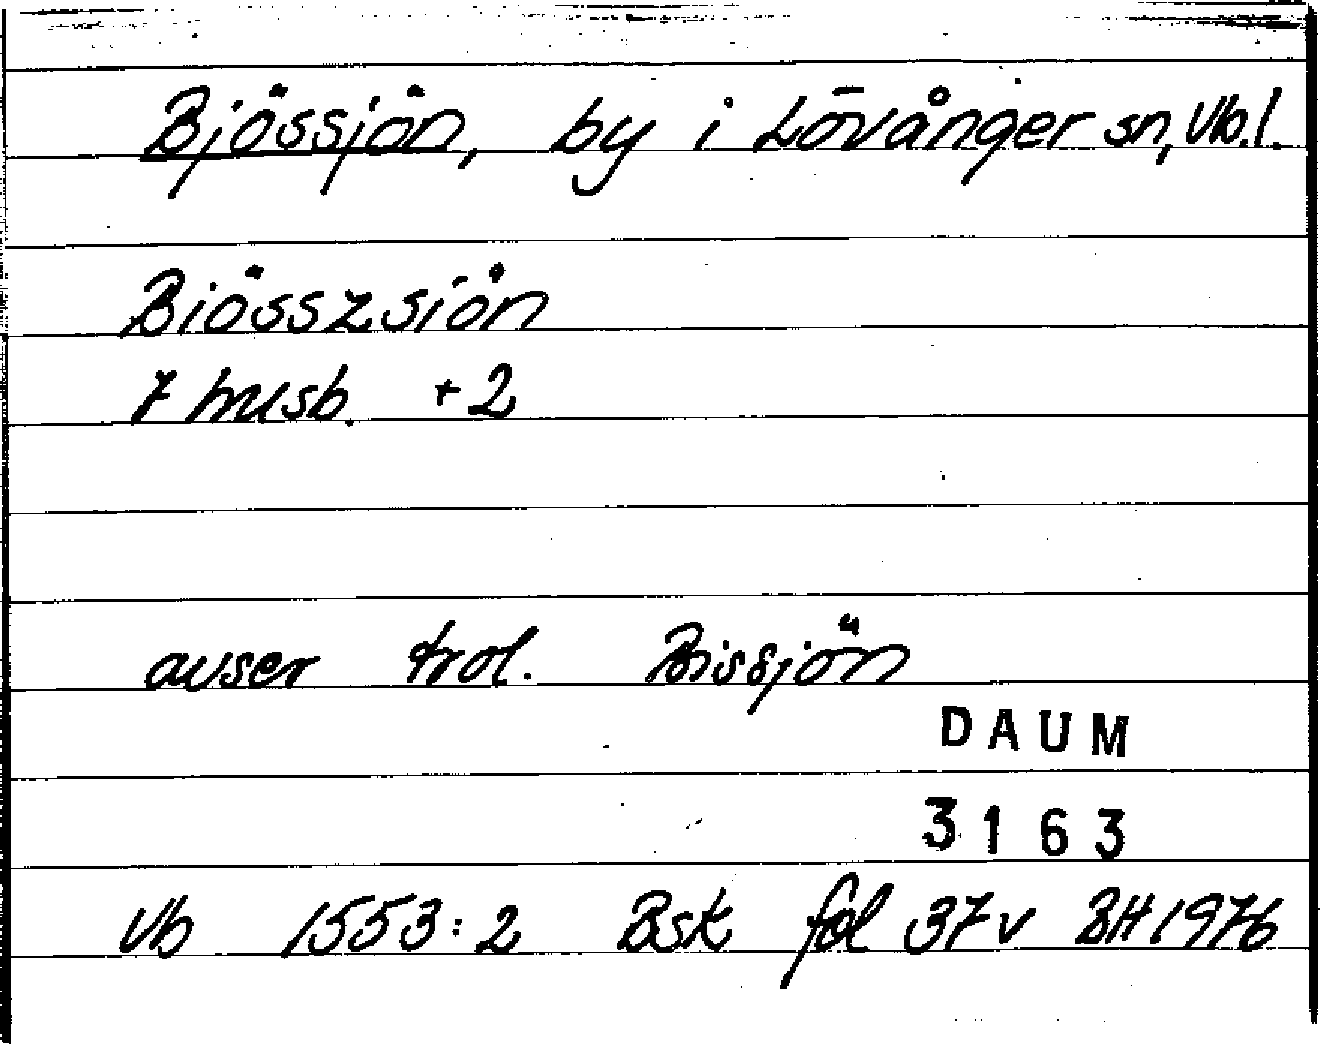 Bjössjön, by i Lövånger sn, Vb.l.
Biösszsiön
7 husb. + 2
avser trol. Bissjön
DAUM
3163
Vb 1553:2 Bsk fol 37v BH 1976